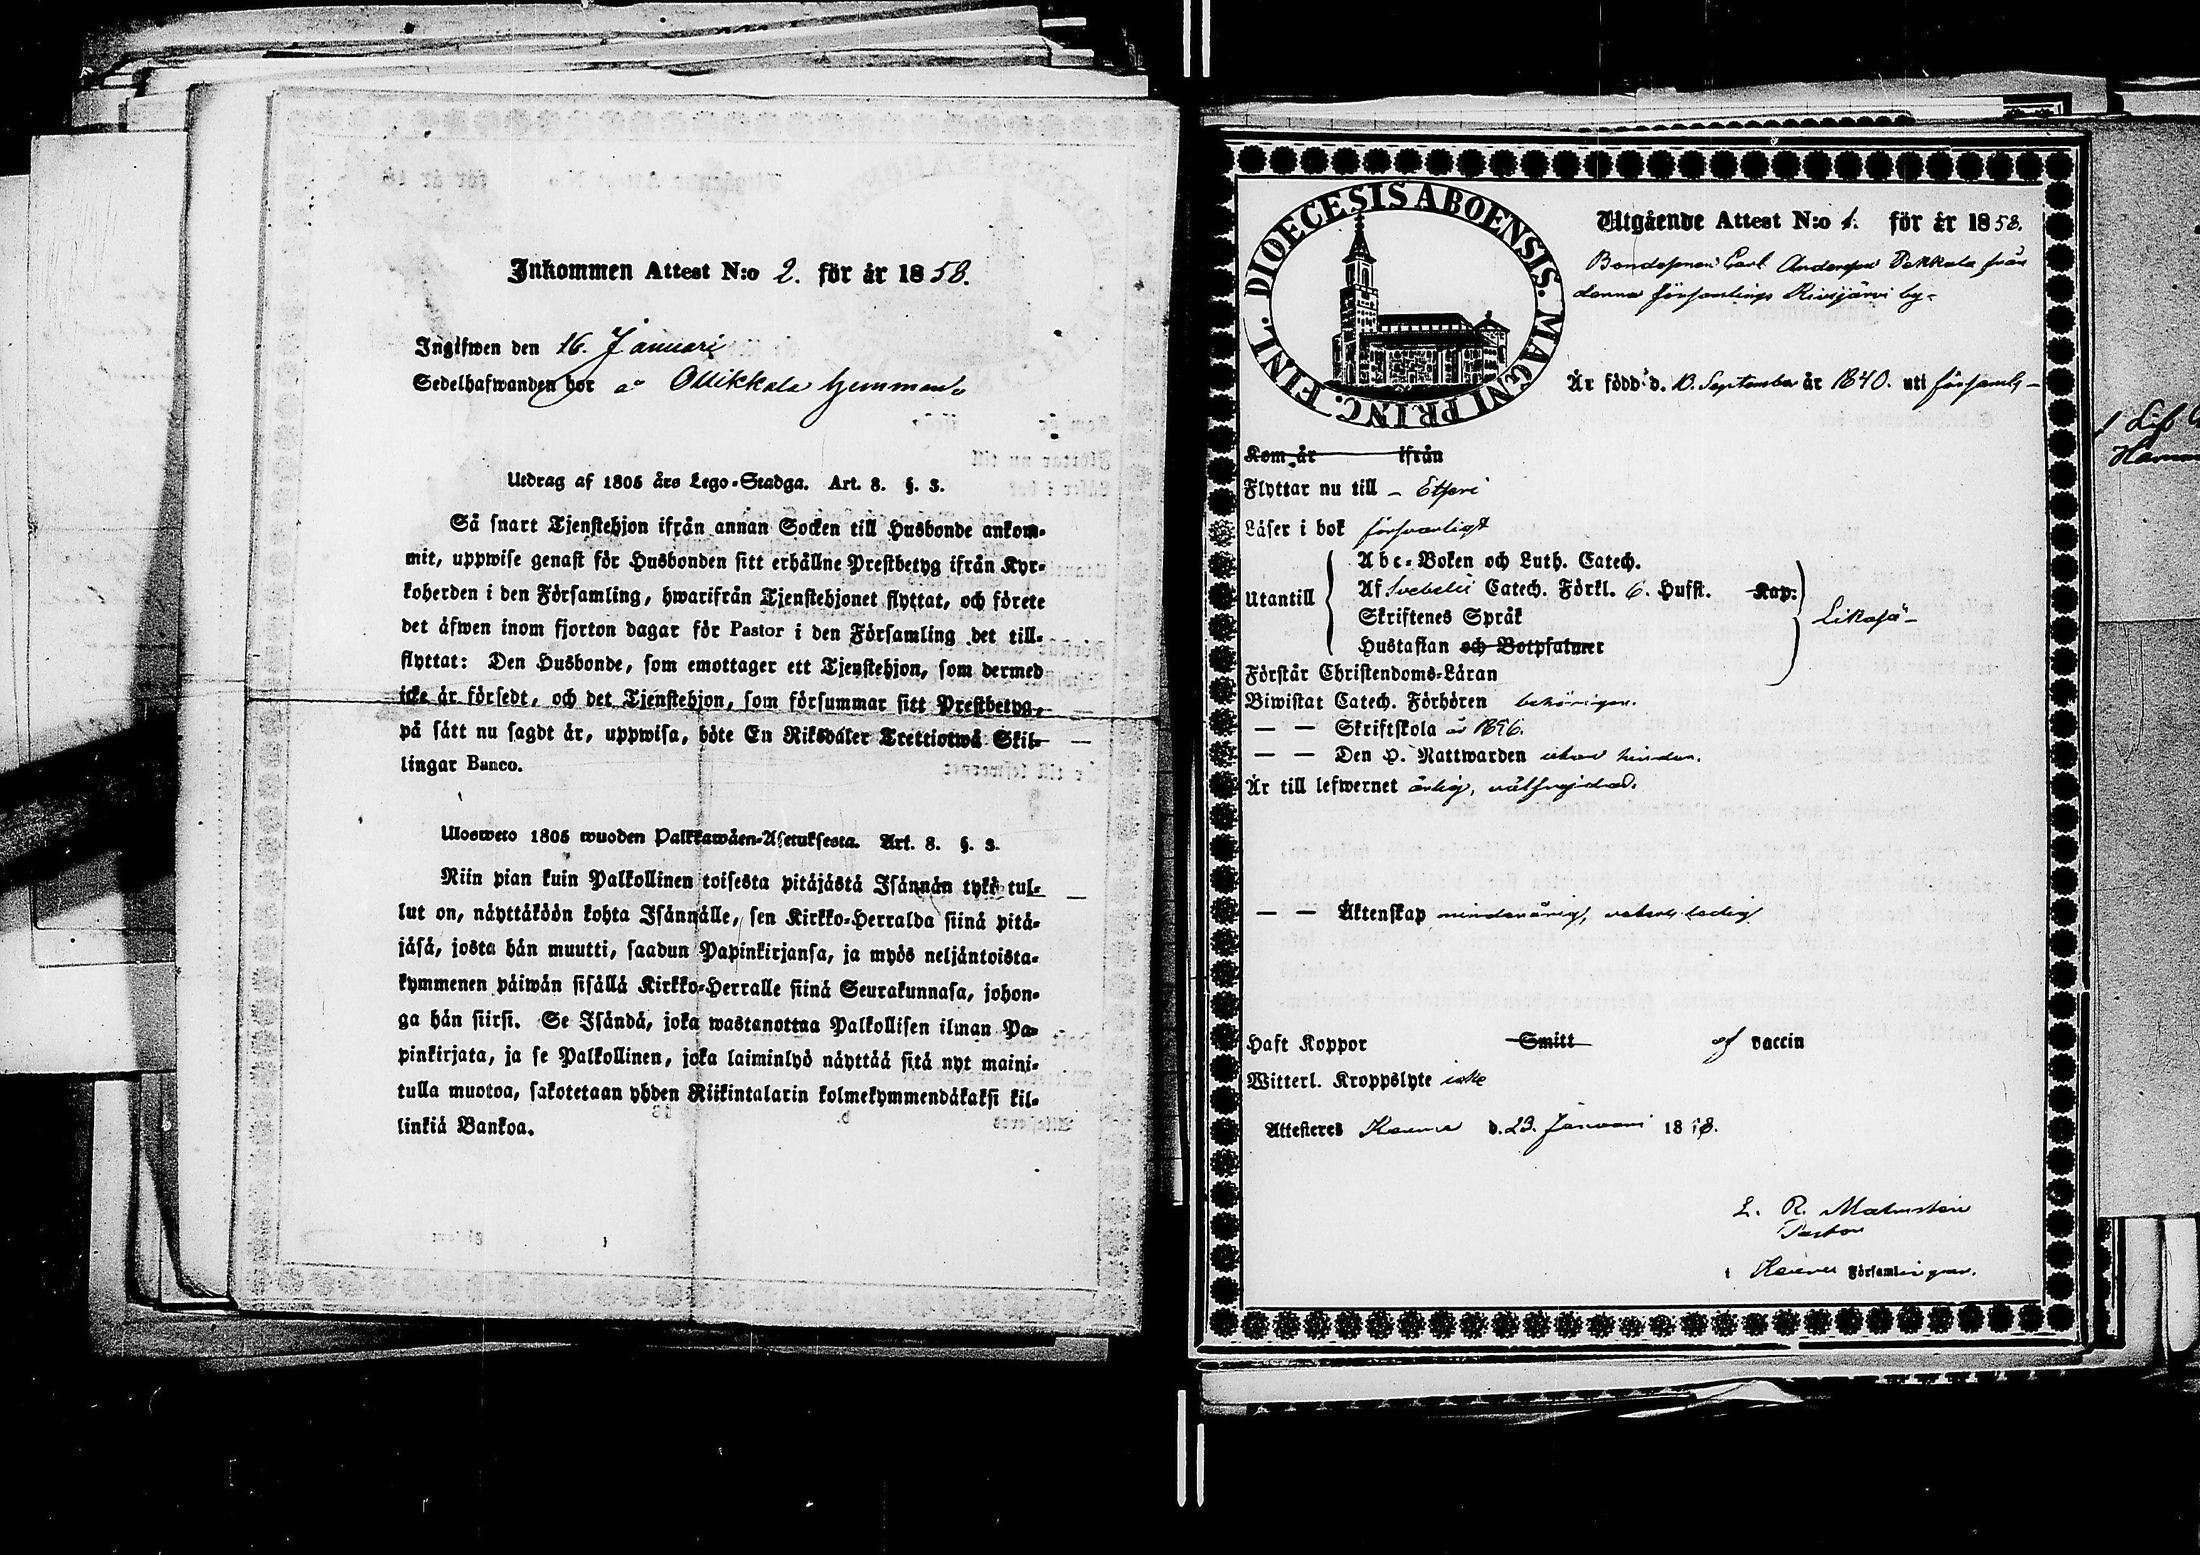 Inkommen Attest N:o 2. för år 1858.
Ingifwen den 16. Januari
Sedelhafwanden bor å Ollikkala hemman
Utdrag af 1805 års Lego-Stadga. Art. 8. §. 3.
Så snart Tjenstehjon ifrån annan Socken till Husbonde ankom-
mit, uppwise genast för Husbonden sitt erhållne Prestbetyg ifrån Kyr-
koherden i den Församling, hwarifrån Tjenstehjonet flyttat, och förete
det äfwen inom fjorton dagar för Pastor i den Församling det till-
flyttat: Den Husbonde, som emottager ett Tjenstehjon, som dermed
icke är försedt, och det Tjenstehjon, som försummar sitt Prestbetyg,
på sätt nu sagdt är, uppwisa, böte En Riksdaler Trettiotwå Skil-
lingar Banco.
Ulosweto 1805 wuoden Palkkawäen-Asetuksesta. Art. 8. §. 3.
Niin pian kuin Palkollinen toisesta pitäjästä Isännän tykö tul-
lut on, näyttäköön kohta Isännälle, sen Kirkko-Herralda siinä pitä-
jäsä, josta hän muutti, saadun Papinkirjansa, ja myös neljäntoista-
kymmenen päiwän sisällä Kirkko-Herralle siinä Seurakunnasa, johon-
ga hän siirsi. Se Isändä, joka wastanottaa Palkollisen ilman Pa-
pinkirjata, ja se Palkollinen, joka laiminlyö näyttää sitä nyt maini-
tulla muotoa, sakotetaan yhden Riikintalarin kolmekymmendäkaksi kil-
linkiä Bankoa.
DIOECESIS ABOENSIS. MAGNI PRINC. FINL.
Utgående Attest N:o 1. för år 1858.
Bondesonen Carl Andersson Pekkala från
denna församlings Riwijärwi by
Är född d. 10. September år 1840. uti församl-
Kom år ifrån
Flyttar nu till - Etseri
Läser i bok försvarligt
Utantill
Abc-Boken och Luth. Catech.
Af Svebelii Catech. Förkl. 6. Hufst. Kap.
Skriftenes Språk
Hustaflan och Botpsalmer
Likaså
Förstår Christendoms-Läran
Biwistat Catech. Förhören behörigen.
— — Skriftskola år 1856.
— — Den H. Nattwarden utan hinder.
Är till lefwernet ärlig, välfrejdad.
— — Äktenskap minderårig, ledig
Haft Koppor Smitt af vaccin
Witterl. Kroppslyte icke
Attesteres Keuru d. 23. Januari 1858.
L. R. Malmstén
Pastor
i Keuru Församlingen.